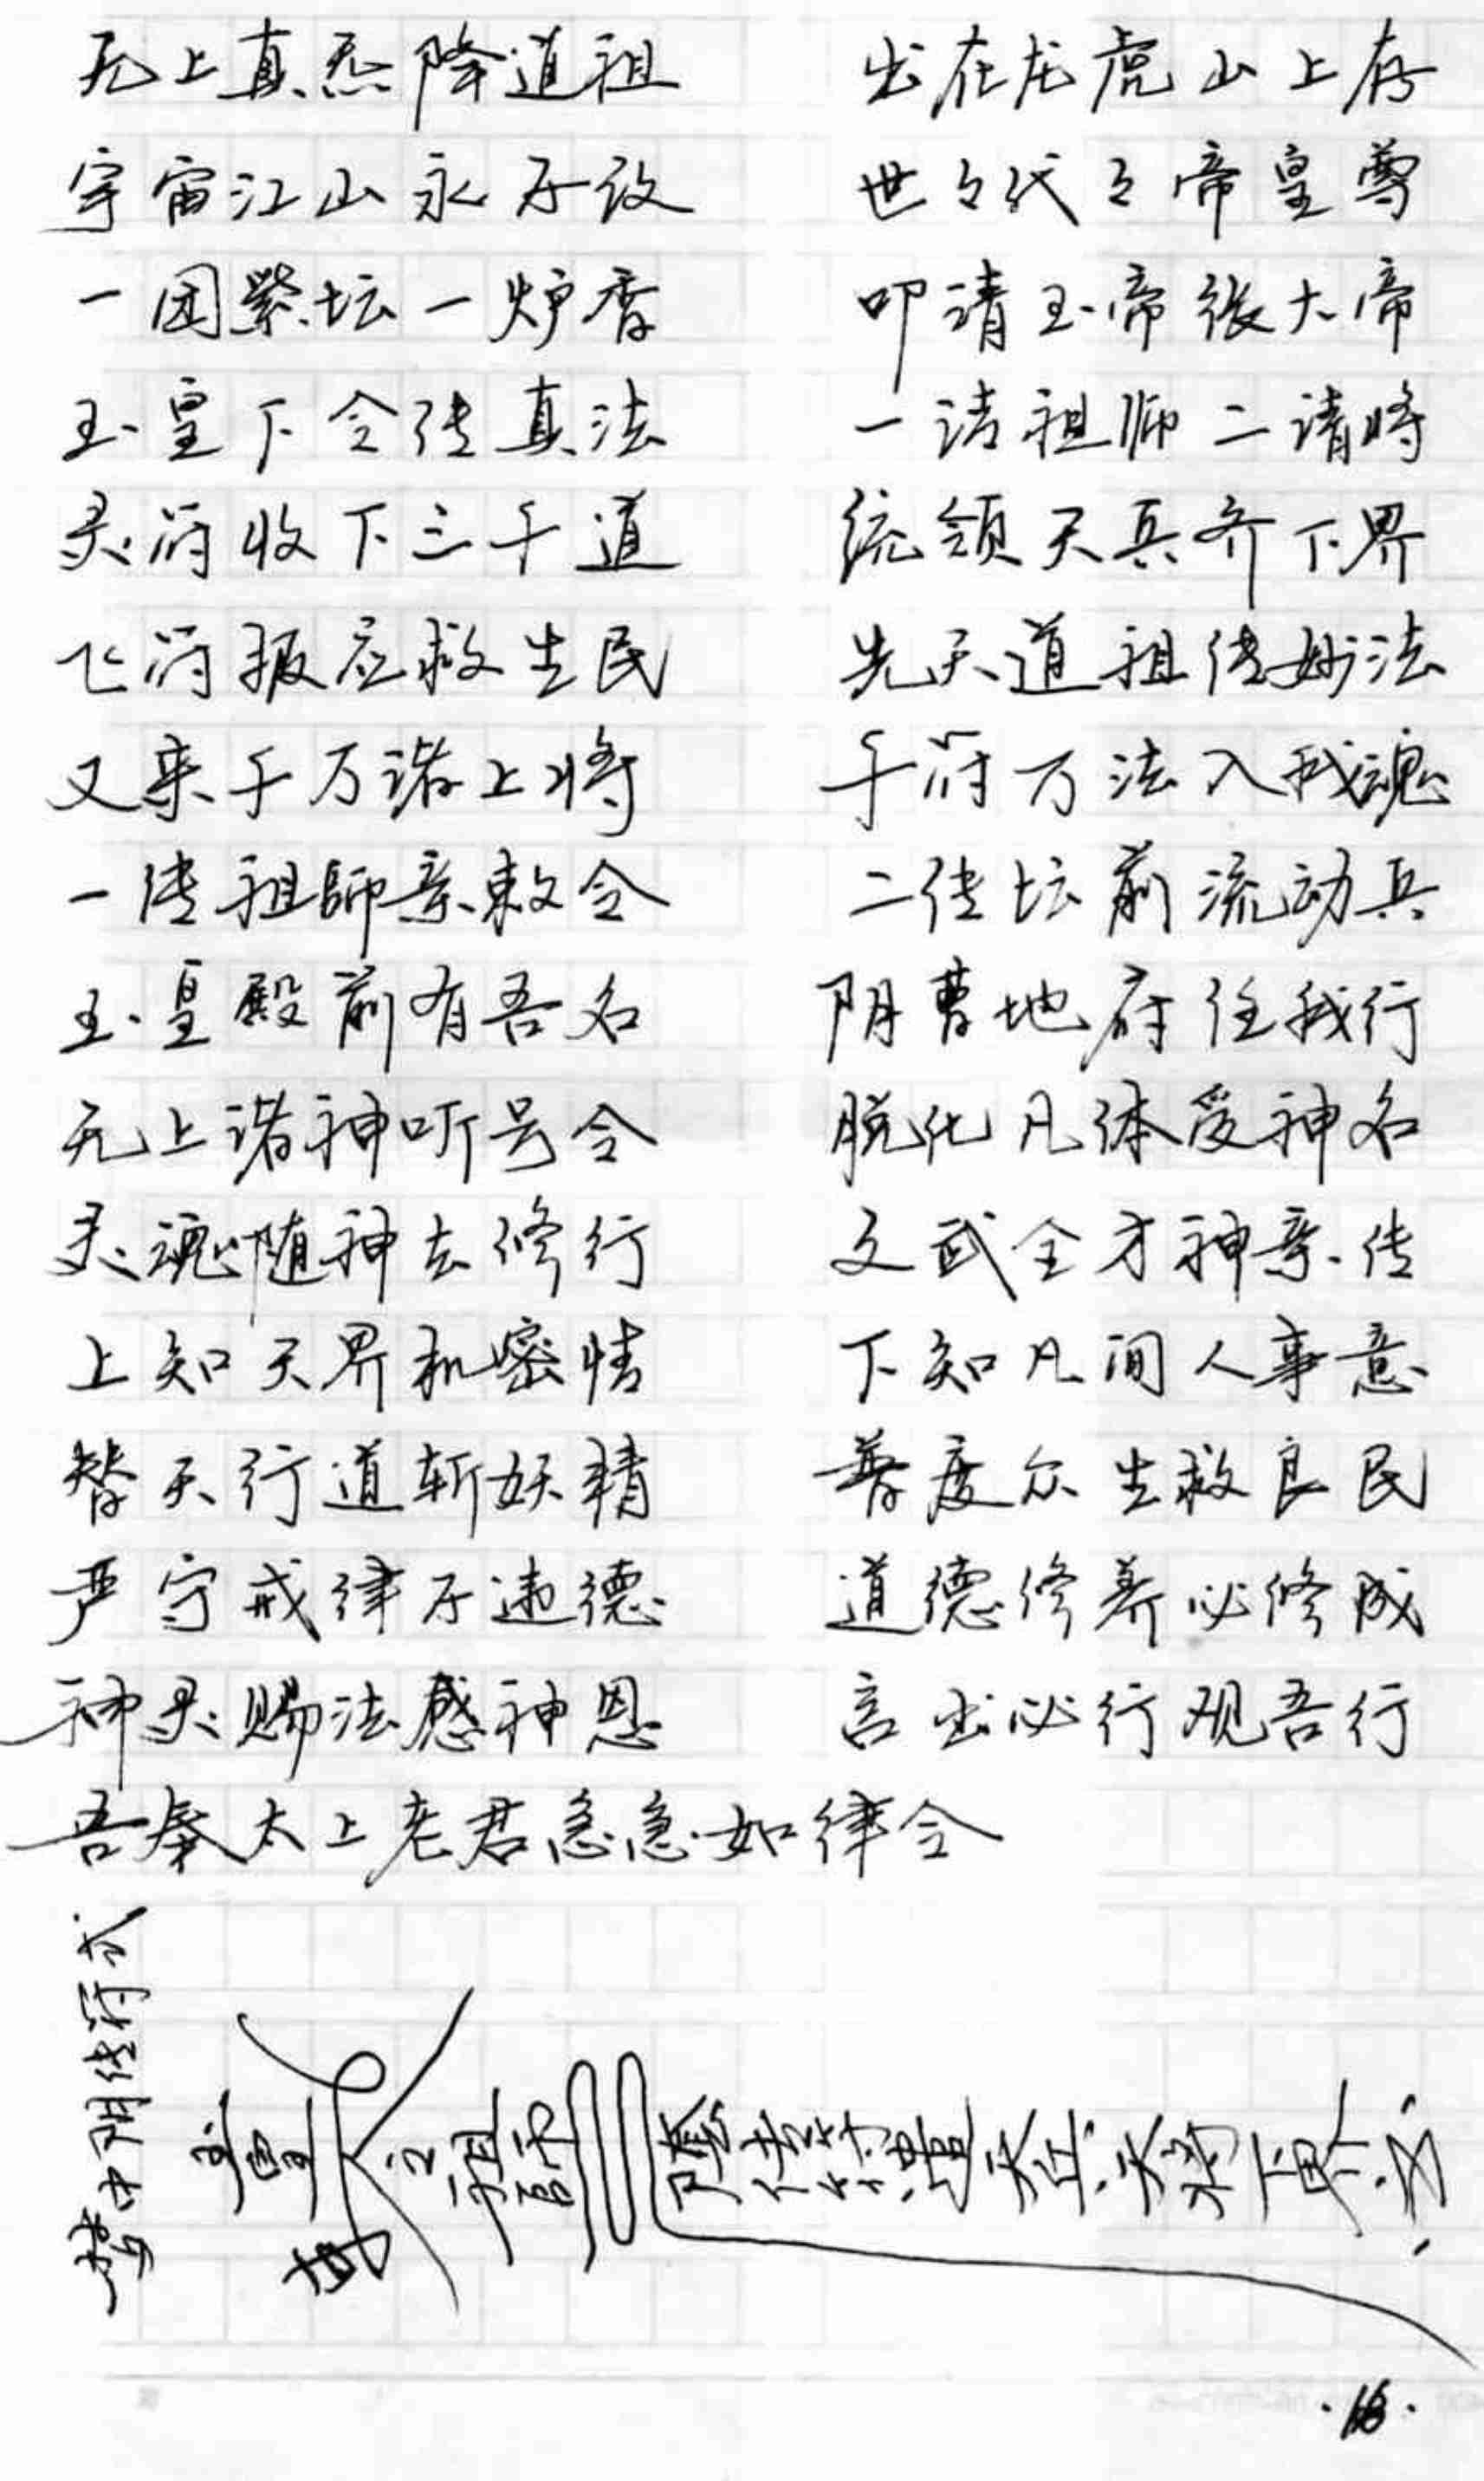 无上真炁降道祖 出在龙虎山上存
宇宙江山永不改 世々代々帝皇尊
一团紫坛一炉香 叩请玉帝张大帝
玉皇下令传真法 一请祖师二请将
灵符收下三千道 统领天兵齐下界
飞符报应救生民 先天道祖传妙法
又来千万诸上将 千符万法入我魂
一传祖師亲敕令 二传坛前流动兵
玉皇殿前有吾名 阴曹地府任我行
无上诸神听号令 脱化凡体受神名
灵魂随神去修行 文武全才神亲传
上知天界机密情 下知凡间人事意
替天行道斩妖精 普度众生救良民
严守戒律不违德 道德修养必修成
神灵赐法感神恩 言出必行观吾行
吾奉太上老君急急如律令
梦中阴传符式
祖師
天兵天将下界